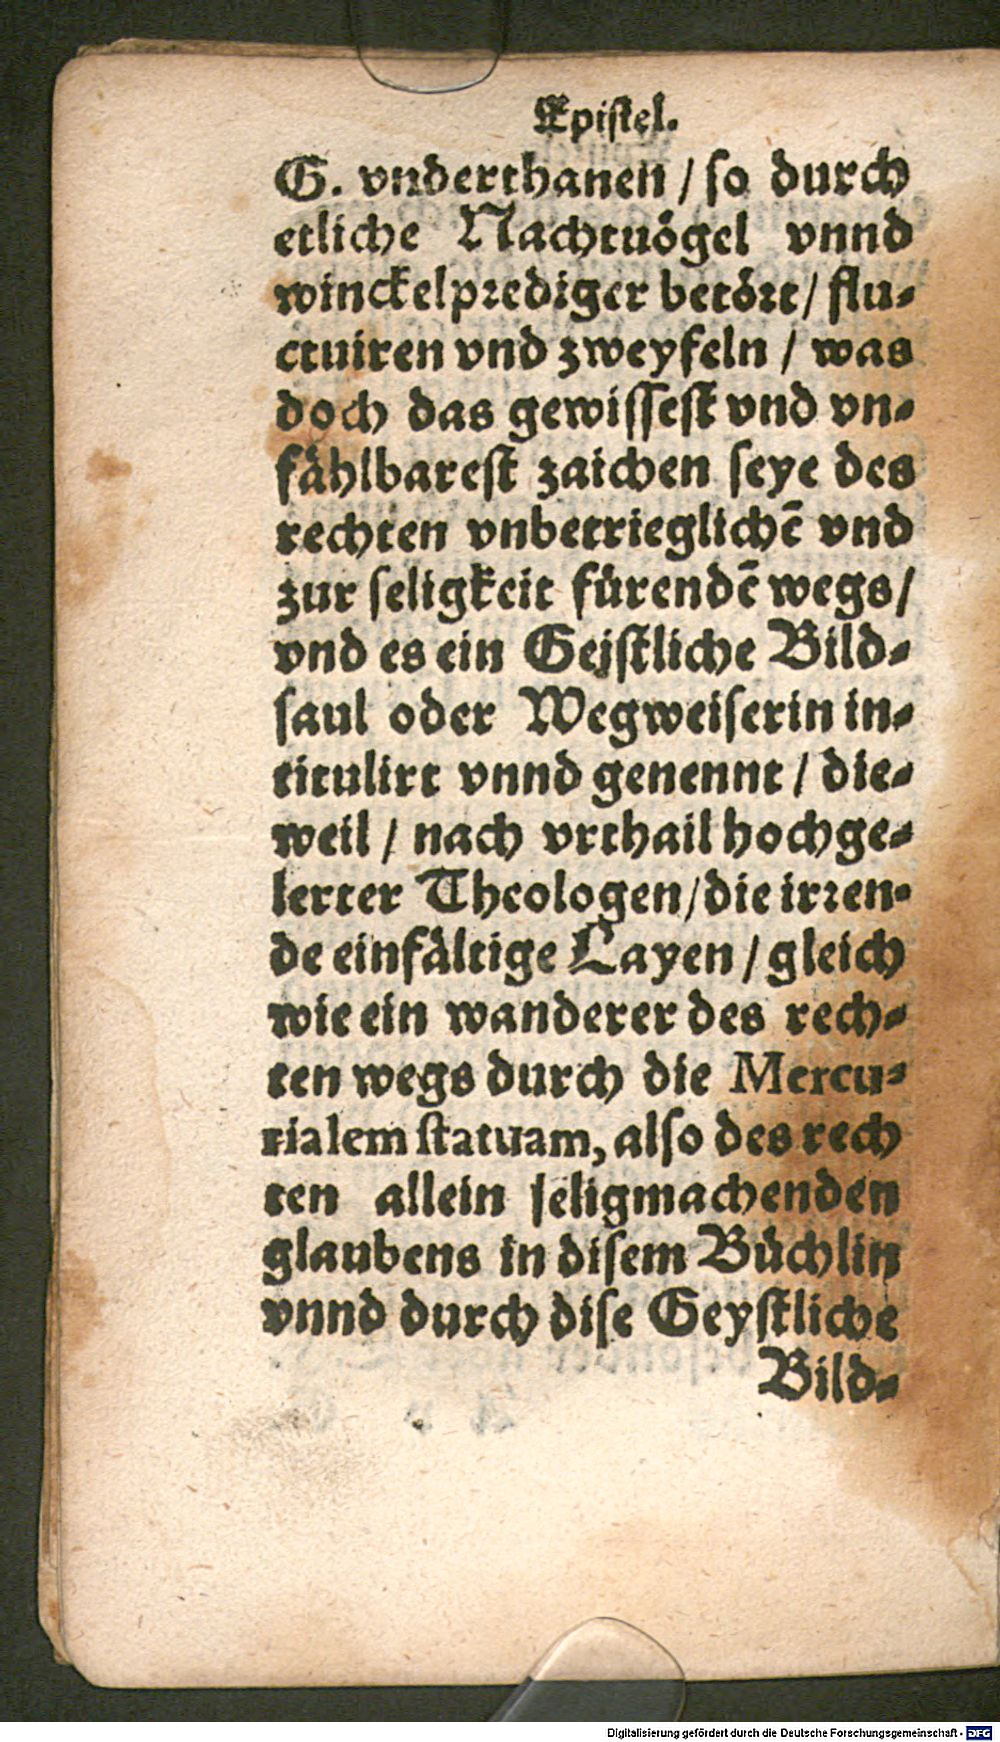 Epistel.
G. vnderthanen / so durch
etliche Nachtuögel vnnd
winckelprediger betört / flu-
ctuiren vnd zweyfeln / was
doch das gewissest vnd vn-
fählbarest zaichen seye des
rechten vnbetrieglichē vnd
zur seligkeit fürendē wegs /
vnd es ein Geistliche Bild-
saul oder Wegweiserin in-
titulirt vnnd genennt / die-
weil / nach vrthail hochge-
lerter Theologen / die irren-
de einfältige Layen / gleich
wie ein wanderer des rech-
ten wegs durch die Mercu-
rialem statuam, also des rech
ten allein seligmachenden
glaubens in disem Büchlin
vnnd durch dise Geystliche
Bild-
Digitalisierung gefördert durch die Deutsche Forschungsgemeinschaft - DFG